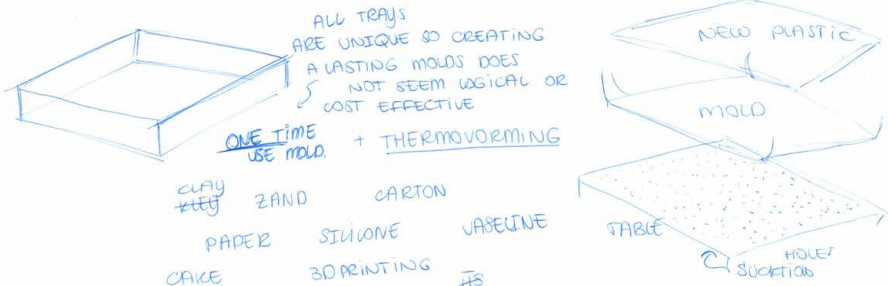 ALL TRAYS
ARE UNIQUE SO CREATING
A LASTING MOLDS DOES
NOT SEEM LOGICAL OR
COST EFFECTIVE
ONE TIME
USE MOLD.
+ THERMOVORMING
CLAY
KLEY
ZAND
CARTON
PAPER
SILICONE
VASELINE
CAKE
3D PRINTING
NEW PLASTIC
MOLD
TABLE
HOLES
SUCKTION